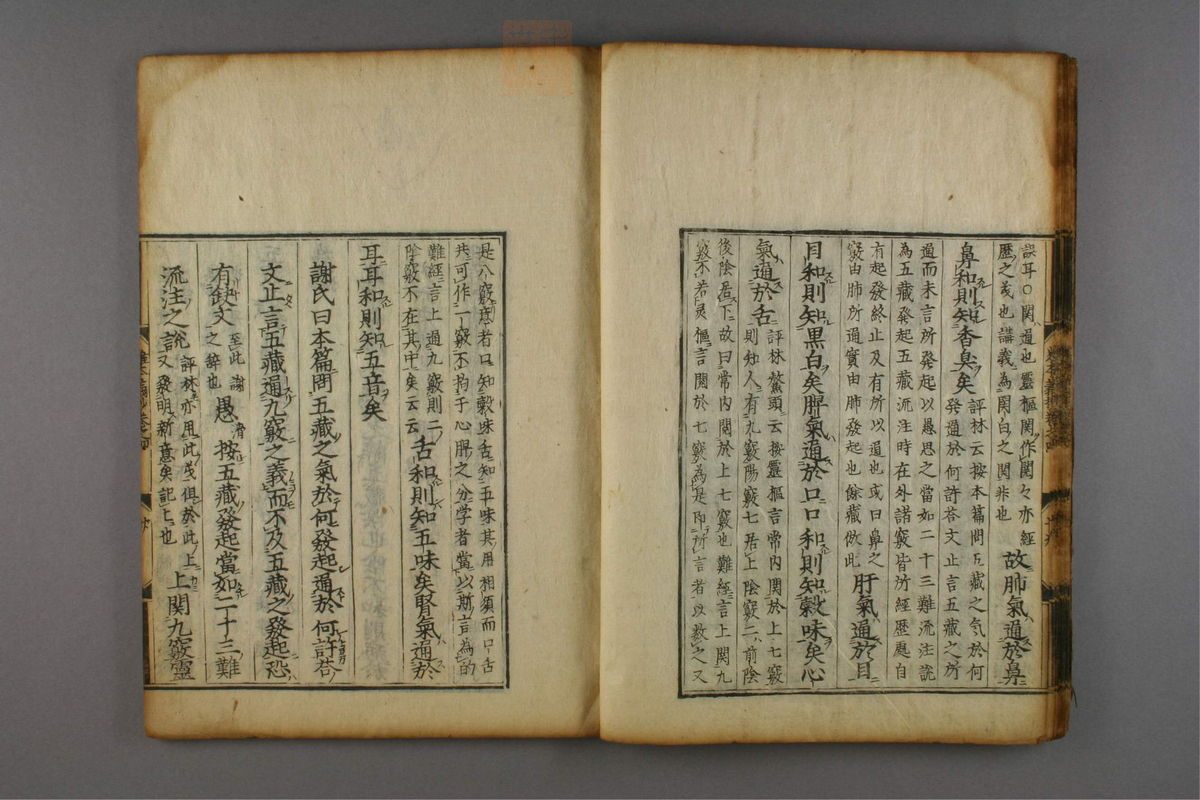 誤耳○関通也靈樞関作関々亦経
歴之義也講義為関白之関非也
故肺氣通於鼻
鼻和則知香臭矣
評林云按本篇問五藏之気於何
發通於何許答文止言五藏之所
通而未言所發起以愚思之當如二十三難流注說
為五藏發起五藏流注時在外諸竅皆所經歷應自
有起發終止及有所以通也或曰鼻之
竅由肺所通實由肺發起也餘藏倣此
肝氣通於目
目和則知黒白矣脾氣通於口口和則知穀味矣心
氣通於舌
評林鰲頭云按靈樞言常内関於上七竅
則知人有九竅陽竅七居上陰竅二前陰
後陰居下故曰常内関於上七竅也難經言上関九
竅不若灵樞言関於七竅為是即所言者以数之又
是八竅意者口知穀味舌知五味其用相須而口舌
共可作一竅不拘于心脾之分学者當以斯言為的
難經言上通九竅則二
陰竅不在其中矣云云
舌和則知五味矣腎氣通於
耳耳和則知五音矣
謝氏曰本篇問五藏之氣於何發起通於何許荅
文止言五藏通九竅之義而不及五藏之發起恐
有缺文
至此謝
之辞也
愚按五藏發起當如二十三難
流注之説
評林亦用此義俱於此上
又發明新意矣記上也
上関九竅靈